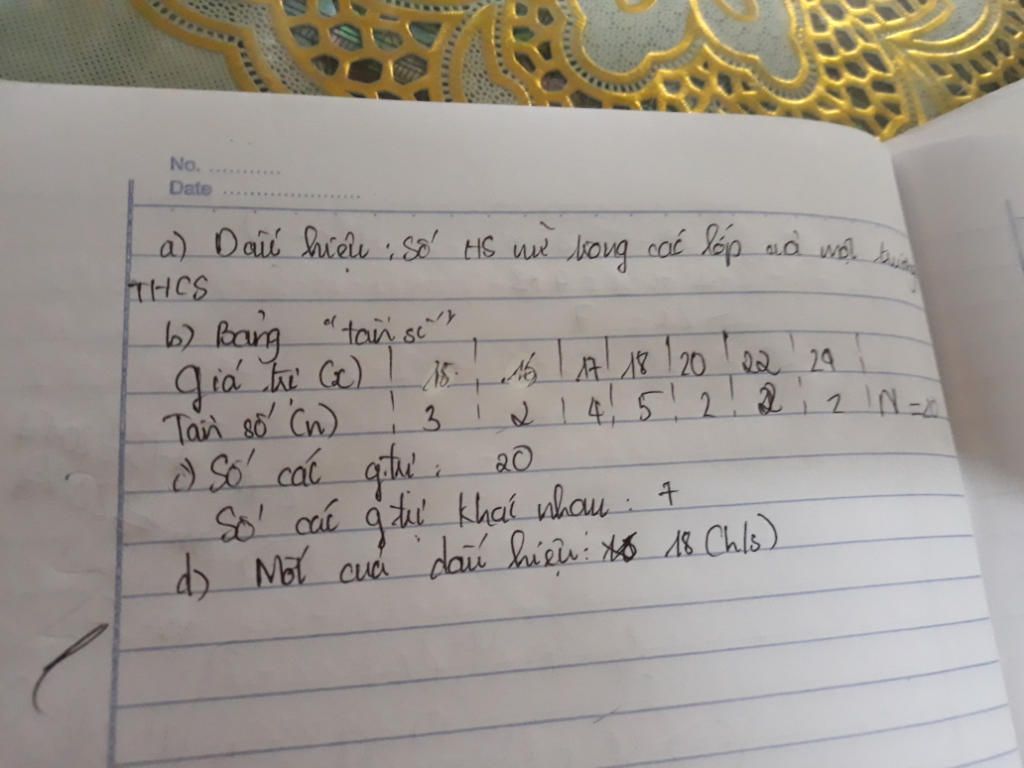 No. ............
Date .......................
a) Dấu hiệu : Số HS nữ trong các lớp của một trường
THCS
b) Bảng "tần số"
Giá trị (x) | 15 | 16 | 17 | 18 | 20 | 22 | 24 |
Tần số (n) | 3 | 2 | 4 | 5 | 2 | 2 | 2 | N = 20
c) Số các g.trị : 20
Số các g trị khác nhau : 7
d) Mốt của dấu hiệu : 18 (h/s)